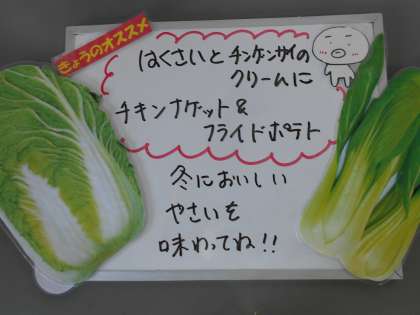 きょうのオススメ
はくさいとチンゲンサイの
クリームに
チキンナゲット&
フライドポテト
冬においしい
やさいを
味わってね!!